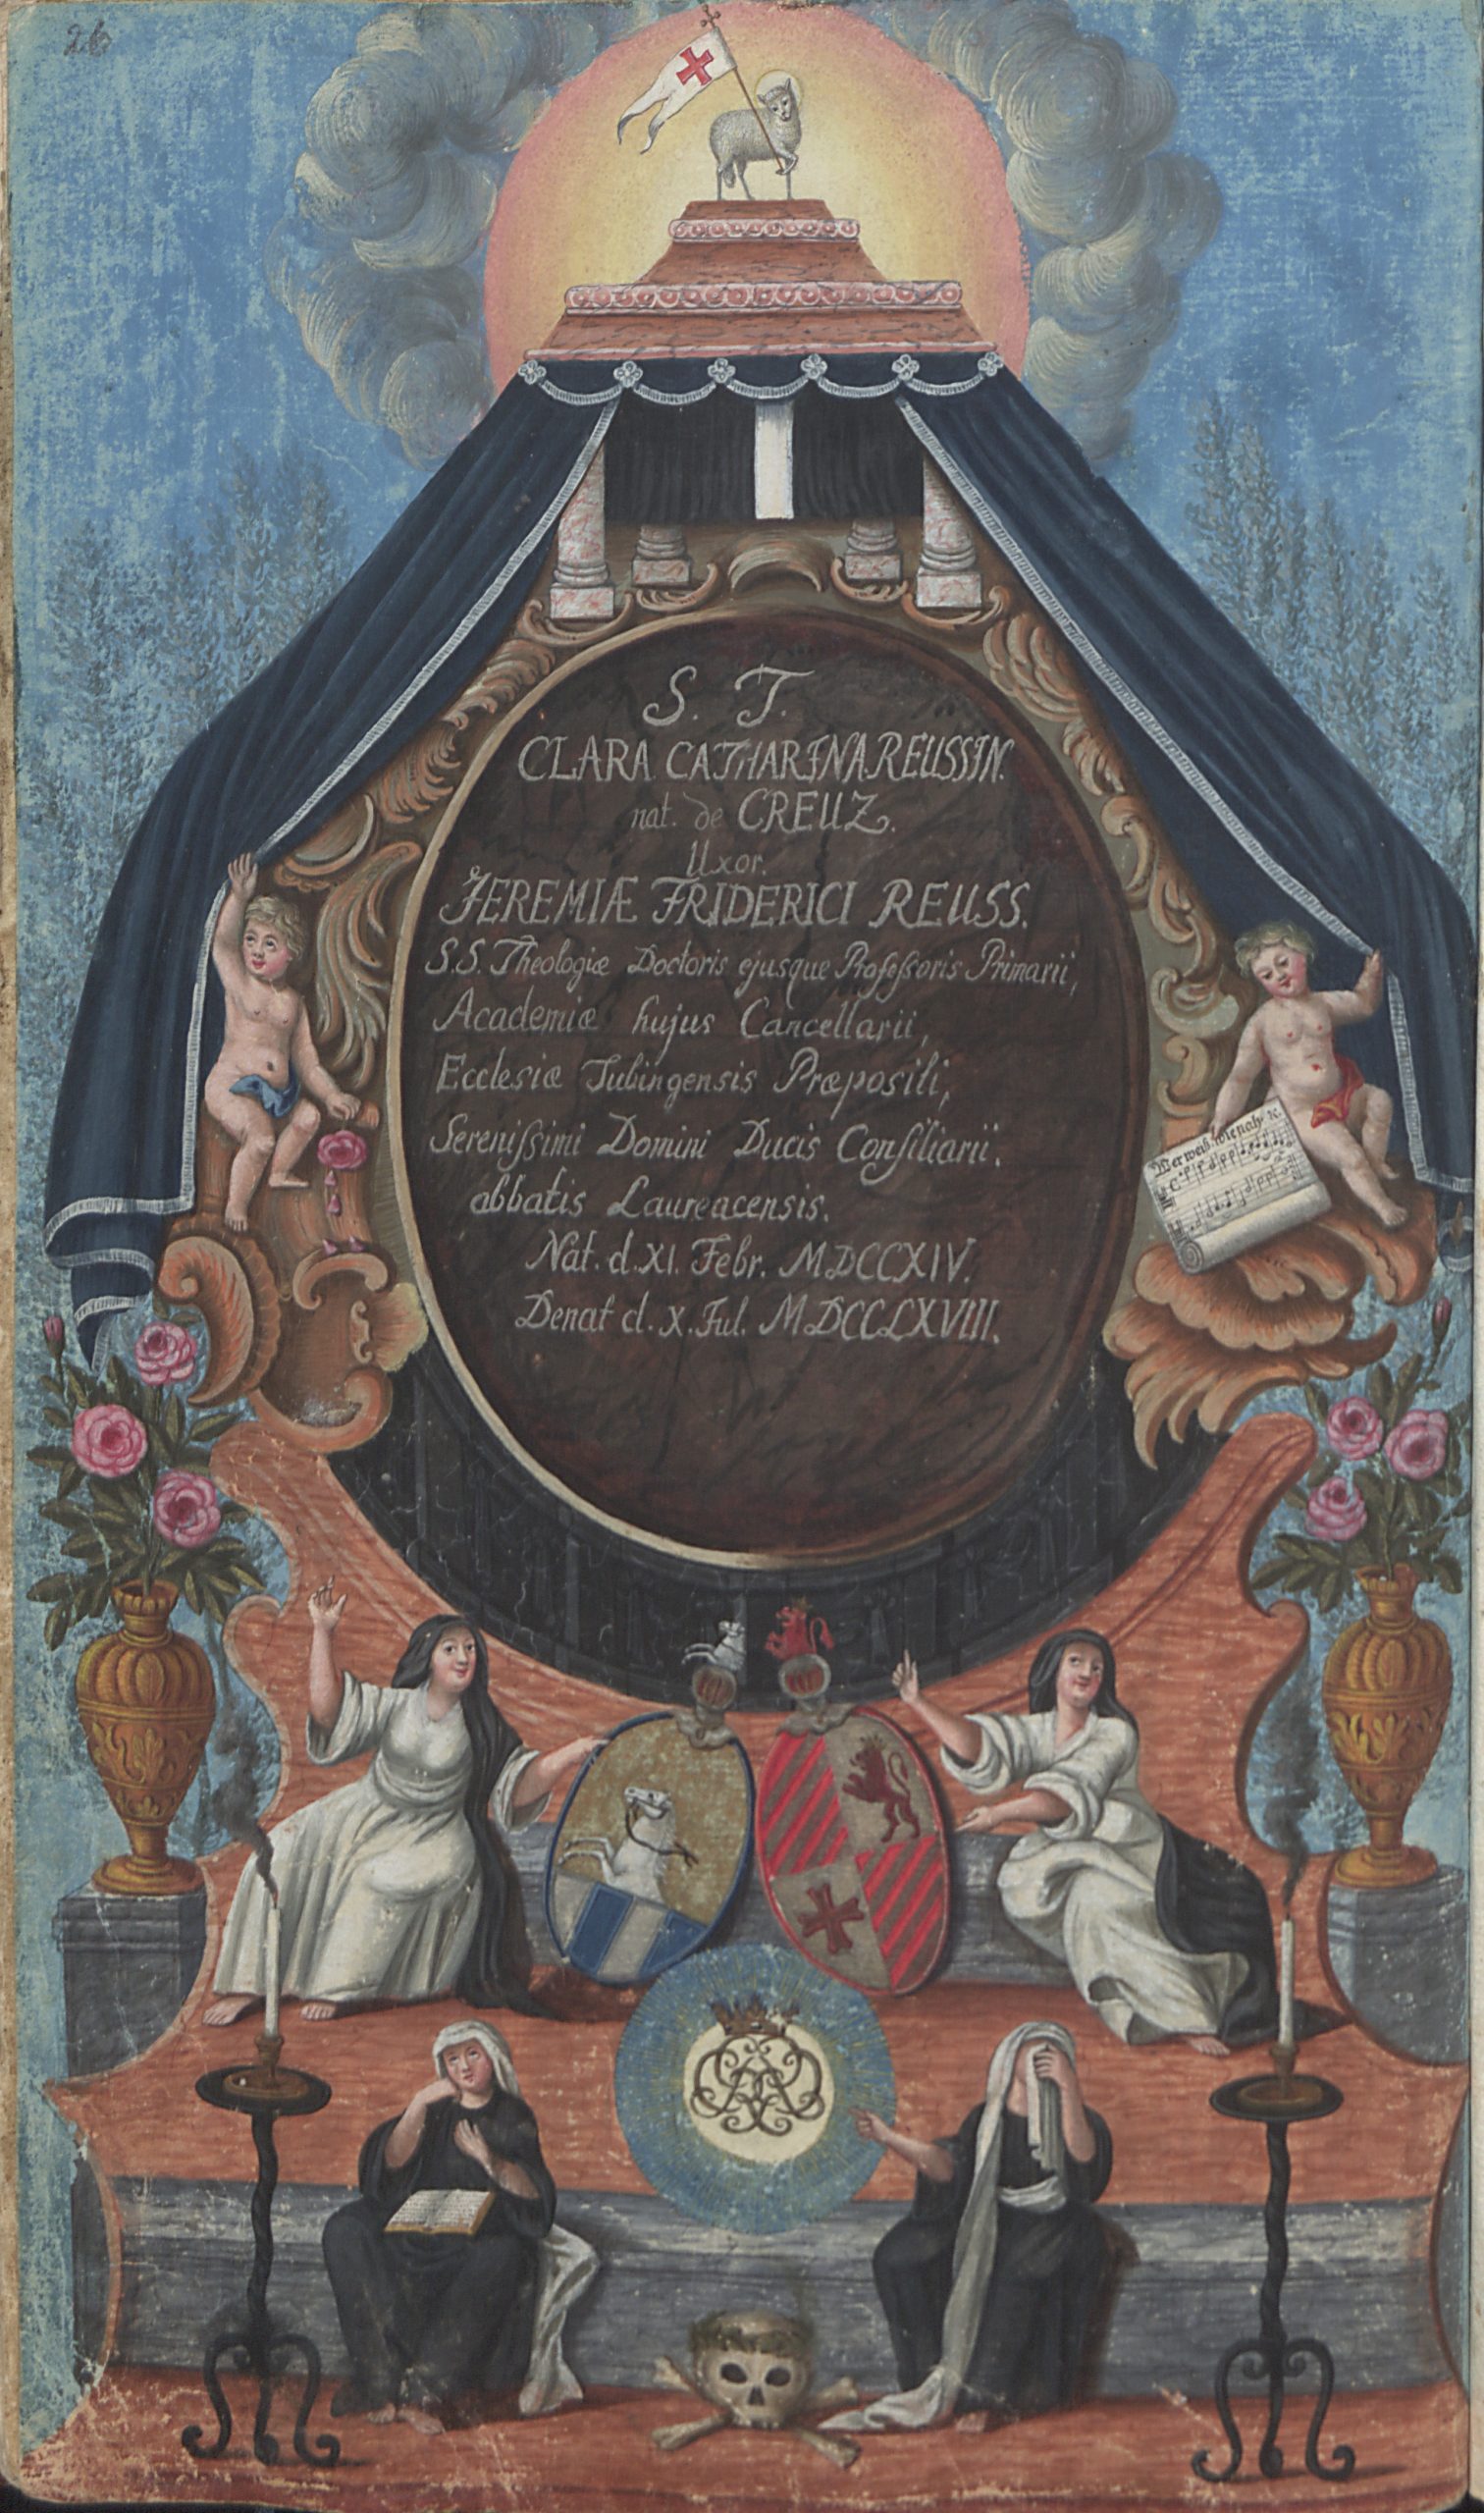 26
S. T.
CLARA CATHARINA REUSSIN.
nat. de CREUZ.
Uxor.
JEREMIÆ FRIDERICI REUSS.
S.S. Theologiæ Doctoris ejusque Profeſſoris Primarii,
Academiæ hujus Cancellarii,
Ecclesiæ Tubingensis Præpositi,
Sereniſſimi Domini Ducis Conſiliarii.
abbatis Laureacensis.
Nat. d. XI. Febr. MDCCXIV.
Denat d. X. Jul. MDCCLXVIII.
Wer weiß, wie nah